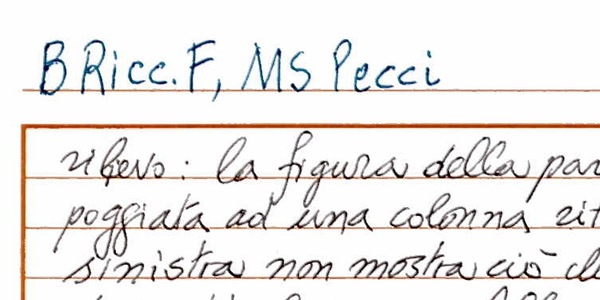 B Ricc. F, MS Pecci
rilievo: la figura della par
poggiata ad una colonna rit
sinistra non mostra ciò